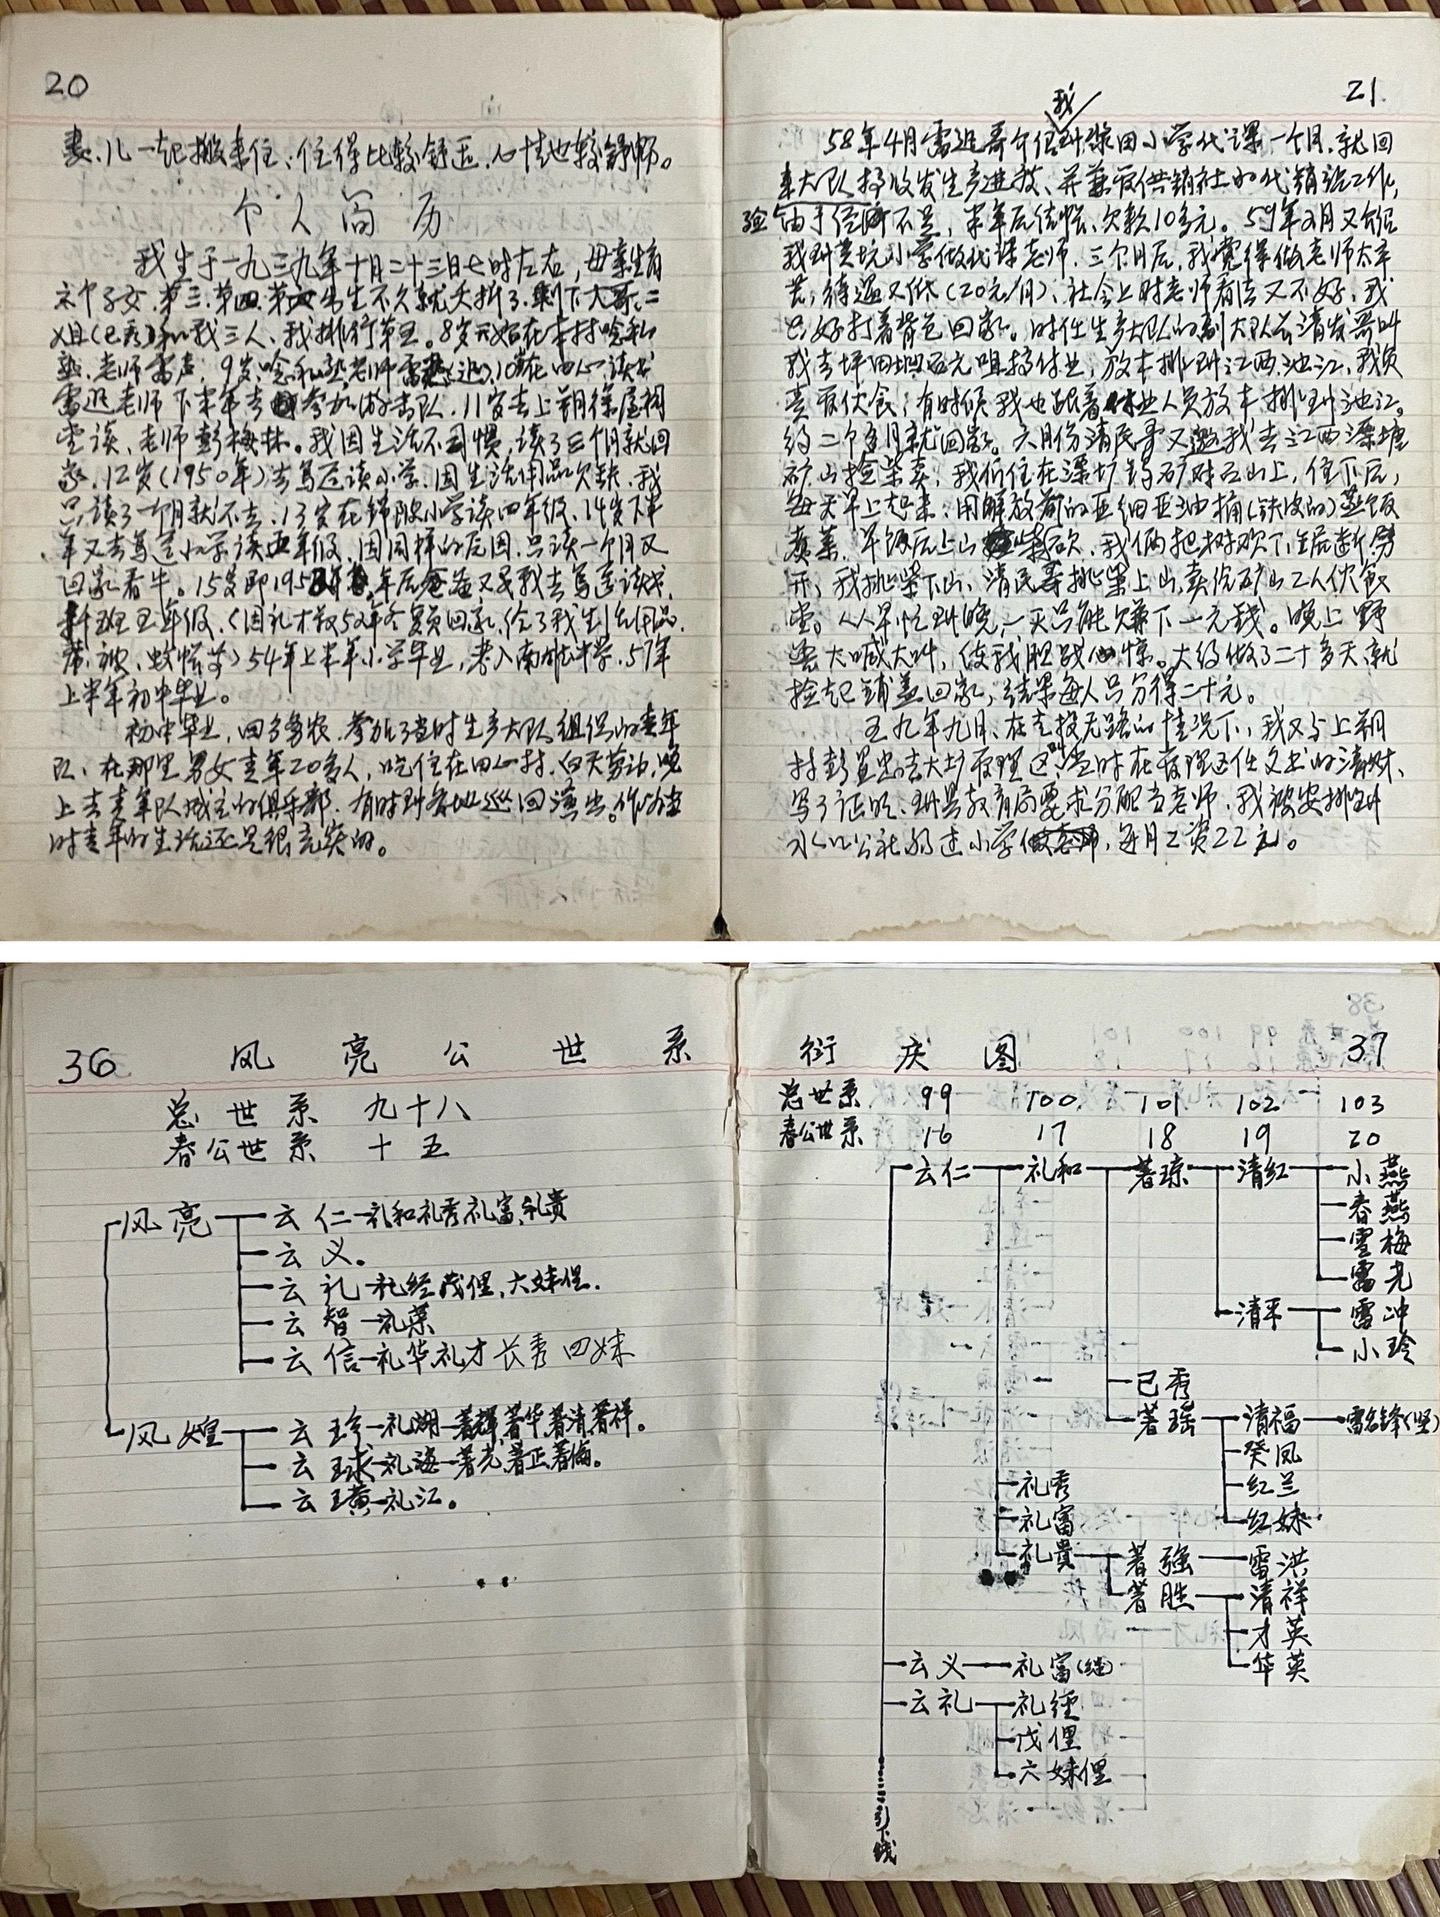 20
妻、儿一起搬来住,住得比较舒适,心情也较舒畅。
个人简历
我生于一九三九年十月二十三日七时左右,母亲生有
六个子女,第三、第四、第 出生不久就夭折了,剩下大哥、二
姐(已 )和我三人,我排行第五。8岁开始在本村念私
塾,老师雷声,9岁念私塾老师雷 ,10 在田心读书
雷迅老师下半年去 参加游击队,11岁去上朔徐屋祠
堂读,老师彭梅林。我因生活不习惯,读了三个月就回
家,12岁(1950年)去 读小学,因生活用品欠缺,我
只读了一个月就不去,13岁在锦陂小学读四年级,14岁下半
年又去 小学读五年级,因同样的原因,只读一个月又
回家看牛。15岁即195 年 年后 又要我去 读书,
新班五年级,(因礼才叔52年冬复员回家,给了我生活用品,
席、被、蚊帐等)54年上半年小学毕业,考入南雄中学,57年
上半年初中毕业。
初中毕业,回乡务农,参加了当时生产大队组织的青年
队,在那里男女青年20多人,吃住在田心村,白天劳动,晚
上去青年队城立的俱乐部,有时到各地巡回演出。作为当
时青年的生活还是很充实的。
21
我
58年4月雷迅哥介绍到 田小学代课一个月,就回
来大队接收发生产进放,并兼顾供销社的代销站工作,
验
由于经 不足,半年后结帐,欠款10多元。59年2月又介绍
我到 坑小学做代课老师,三个月后,我觉得做老师太辛
苦,待遇又低(20元/月),社会上对老师看法又不好,我
只好打着背包回家。时任生产大队的副大队长清发哥叫
我去坪田坳石元咀搞伐业,放木排到江西池江,我负
责管伙食,有时候我也跟着 业人员放木排到池江。
约二个多月就回家。六月份清民哥又邀我去江西漂塘
矿山捡柴卖,我们住在漂塘 矿对面山上,住下后,
每天早上起来,用解放前的亚细亚油桶(铁皮的)蒸饭
煮菜,早饭后上山 砍,我俩把树砍下 后断劈
开,我挑柴下山,清民哥挑柴上山,卖给矿山工人伙食
堂。人人早忙到晚,一天只能赚下一元钱。晚上野
兽大喊大叫,使我胆战心惊。大约做了二十多天,就
捡起铺盖回家,结果每人只分得二十元。
五九年九月,在走投无路的情况下,我又与上朔
村彭 忠去大塘管理区,当时在管理区任文书的清财,
写了证明,到县教育局要求分配当老师,我被安排到
水口公社弱过小学 ,每月工资22元。
36 风亮公世系
总世系 九十八
春公世系 十五
风亮 云仁 礼和 礼秀 礼富 礼贵
云义。
云礼 礼经 茂俚、六妹俚.
云智 礼荣
云信 礼华 礼才 长秀 四妹
风煌 云珍 礼湖 著辉 著华 著清 著祥。
云球 礼海 著光 著正 著梅。
云璜 礼江。
衍庆图 37
总世系 99 100 101 102 103
春公世系 16 17 18 19 20
云仁 礼和 著琼 清红 小燕
春燕
雪梅
雷光
清平 雷冲
小玲
已秀
著瑶 清福 雷名锋(坚)
癸凤
红兰
红妹
礼秀
礼富
礼贵 著强 雷洪
著胜 清祥
才英
华英
云义 礼富(继)
云礼 礼经
茂俚
六妹俚
引下线